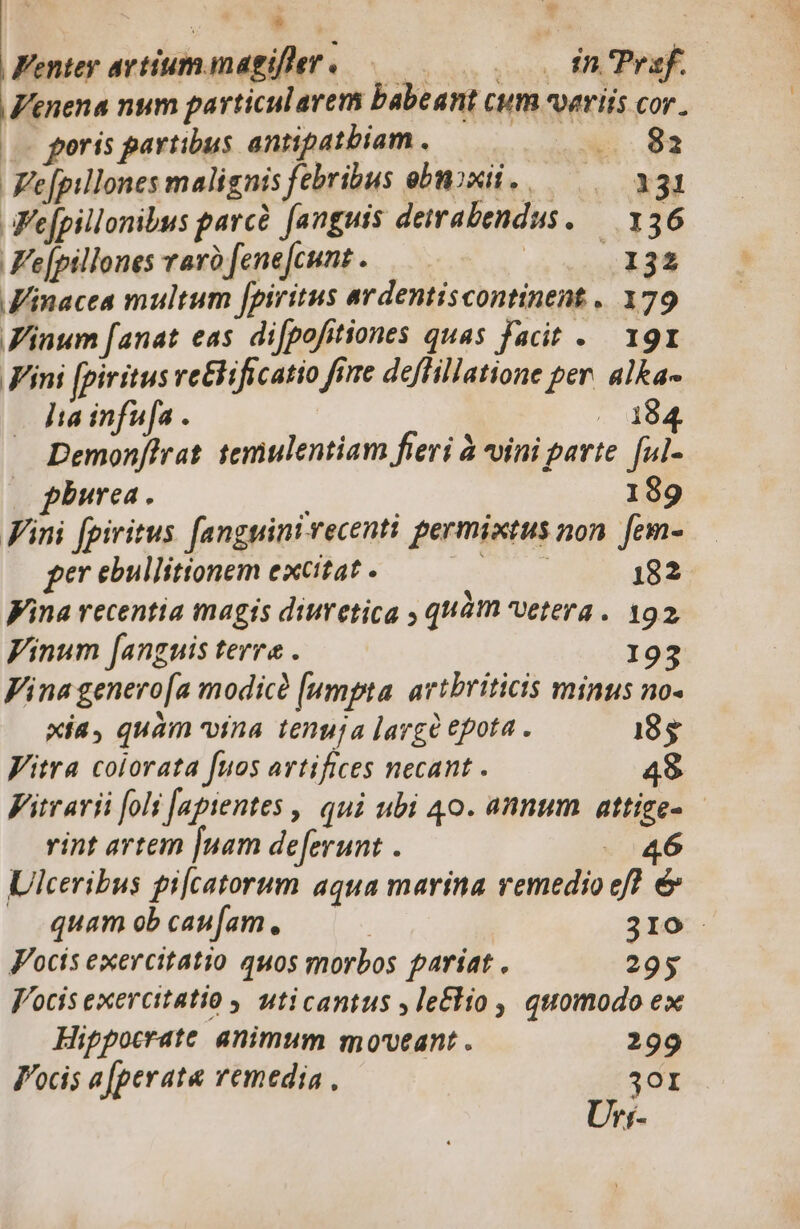 Venter artium magiſter. in Præf.
Venena num particularem habeant cum variis cor-
poris partibus antipathiam. 82
Veſpillones malignis febribus obnoxii. 131
Veſpillonibus parcè ſanguis detrahendus. 136
Veſpillones rarò ſeneſcunt. 132
Vinacea multum ſpiritus ardentis continent. 179
Vinum ſanat eas diſpoſitiones quas facit. 191
Vini ſpiritus rectificatio ſine deſtillatione per alka-
lia infuſa. 184
Demonſtrat temulentiam fieri à vini parte ſul-
phurea. 189
Vini ſpiritus ſanguini recenti permixtus non ſem-
per ebullitionem excitat. 182
Vina recentia magis diuretica, quàm vetera. 192
Vinum ſanguis terræ. 193
Vina generoſa modicè ſumpta arthriticis minus no-
xia, quàm vina tenuja largè epota. 185
Vitra colorata ſuos artifices necant. 48
Vitrarii ſoli ſapientes, qui ubi 40. annum attige-
rint artem ſuam deſerunt. 46
Ulceribus piſcatorum aqua marina remedio eſt &
quam ob cauſam. 310
Vocis exercitatio quos morbos pariat. 295
Vocis exercitatio, uti cantus, lectio, quomodo ex
Hippocrate animum moveant. 299
Vocis aſperatæ remedia. 301
Uri-